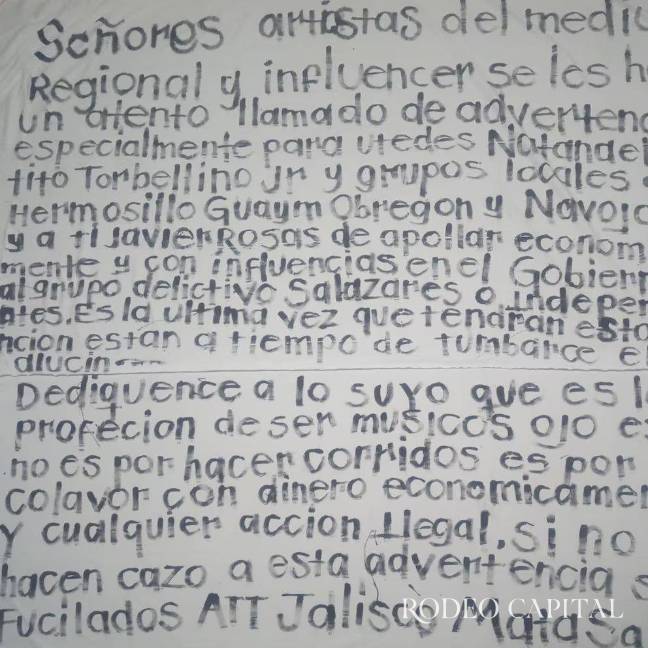 Señores artistas del medi
Regional y influencer se les h
un atento llamado de adverten
especialmente para utedes Natanael
tito Torbellino jr y grupos locales
Hermosillo Guaym Obregon y Navojo
y a ti Javier Rosas de apollar econom
mente y con influencias en el Gobier
al grupo delictivo Salazares o Indepe
ntes. Es la ultima vez que tendran est
ncion estan a tiempo de tumbarce e
alucin----
Dediquence a lo suyo que es l
profecion de ser musicos ojo e
no es por hacer corridos es por
colavor con dinero economicame
y cualquier accion Ilegal, si no
hacen cazo a esta advertencia s
Fucilados ATT Jalisco Mata Sa
RODEO CAPITAL